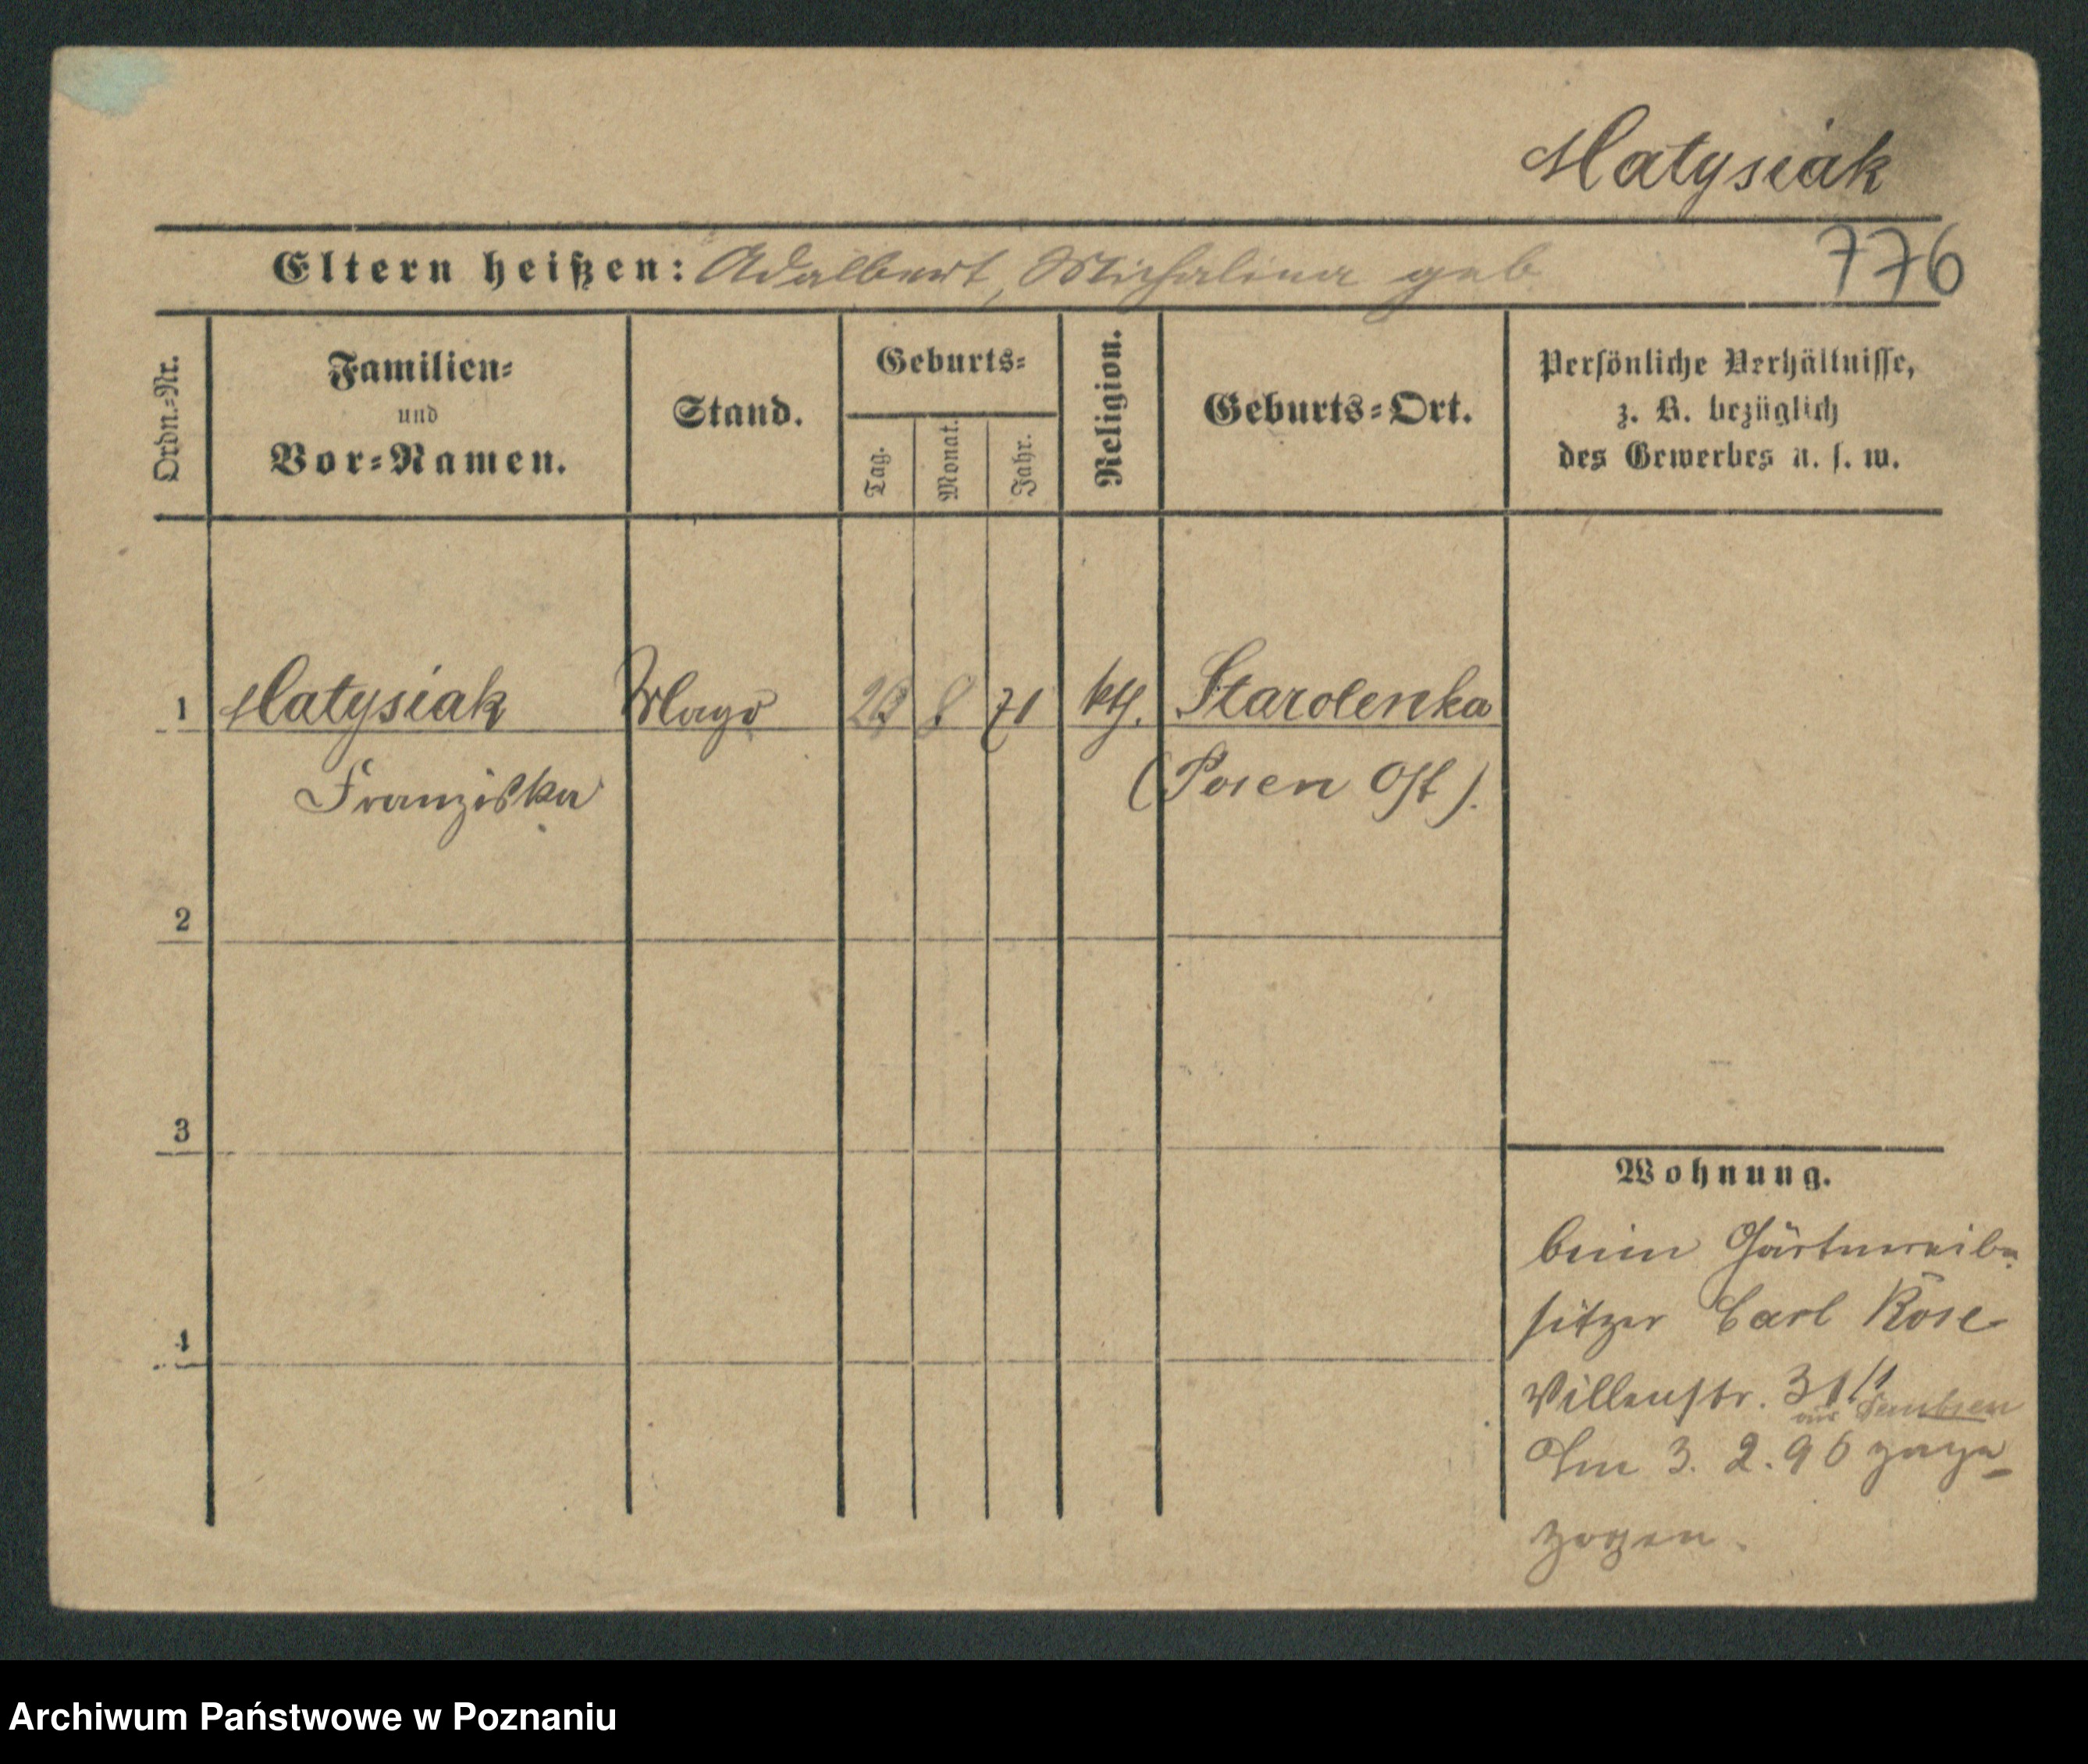 Matysiak
776
Eltern heißen: Adalbert, Michalina geb
Ordn.-Nr.
Familien-
und
Vor-Namen.
Stand.
Geburts-
Tag.
Monat.
Jahr.
Religion.
Geburts-Ort.
Persönliche Verhältnisse,
z. B. bezüglich
des Gewerbes u. s. w.
1 Matysiak Magd 8 71 kth. Starolenka
Franziska (Posen Ost).
2
3
4
Wohnung.
beim Gärtnereibe-
sitzer Carl Rose
Villenstr. 31
aus
Am 3. 2. 96 zuge-
zogen.
Archiwum Państwowe w Poznaniu